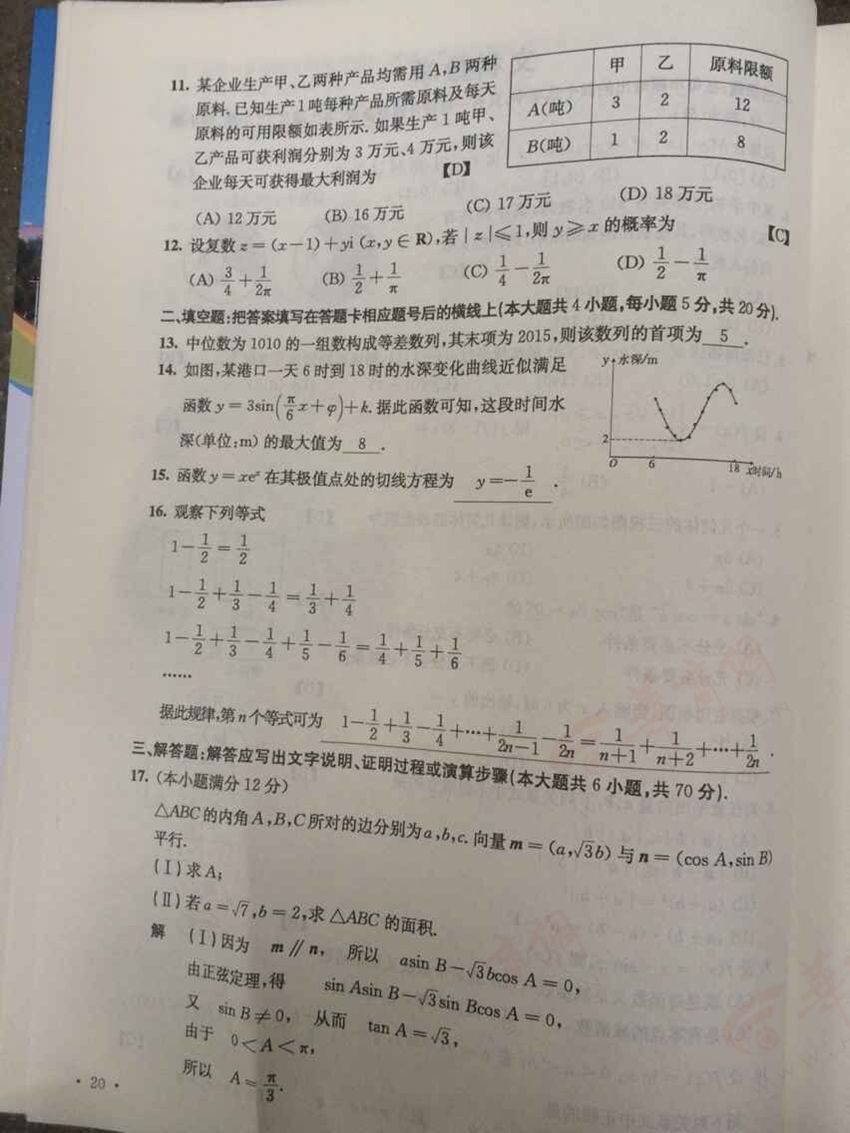 11. 某企业生产甲、乙两种产品均需用 A,B 两种
原料.已知生产1吨每种产品所需原料及每天
原料的可用限额如表所示.如果生产 1 吨甲、
乙产品可获利润分别为 3 万元、4 万元,则该
企业每天可获得最大利润为 【D】
甲 乙 原料限额
A(吨) 3 2 12
B(吨) 1 2 8
(A) 12 万元 (B) 16 万元 (C) 17 万元 (D) 18 万元
12. 设复数 z=(x-1)+yi (x,y∈R),若|z|≤1,则 y≥x 的概率为 【C】
(A) 3/4+1/2π (B) 1/2+1/π (C) 1/4-1/2π (D) 1/2-1/π
二、填空题:把答案填写在答题卡相应题号后的横线上(本大题共 4 小题,每小题 5 分,共 20 分).
13. 中位数为 1010 的一组数构成等差数列,其末项为 2015,则该数列的首项为 5 .
14. 如图,某港口一天 6 时到 18 时的水深变化曲线近似满足
函数 y=3sin(π/6 x+φ)+k.据此函数可知,这段时间水
深(单位:m)的最大值为 8 .
y 水深/m
2
O 6 18 x时间/h
15. 函数 y=xe^x 在其极值点处的切线方程为 y=-1/e .
16. 观察下列等式
1-1/2=1/2
1-1/2+1/3-1/4=1/3+1/4
1-1/2+1/3-1/4+1/5-1/6=1/4+1/5+1/6
……
据此规律,第 n 个等式可为 1-1/2+1/3-1/4+…+1/(2n-1)-1/2n=1/(n+1)+1/(n+2)+…+1/2n .
三、解答题:解答应写出文字说明、证明过程或演算步骤(本大题共 6 小题,共 70 分).
17. (本小题满分 12 分)
△ABC的内角 A,B,C 所对的边分别为 a,b,c.向量 m=(a,√3b) 与 n=(cos A,sin B)
平行.
(Ⅰ)求 A;
(Ⅱ)若 a=√7,b=2,求 △ABC 的面积.
解 (Ⅰ)因为 m∥n, 所以 asin B-√3bcos A=0,
由正弦定理,得 sin Asin B-√3sin Bcos A=0,
又 sin B≠0, 从而 tan A=√3,
由于 0<A<π,
所以 A=π/3.
· 20 ·